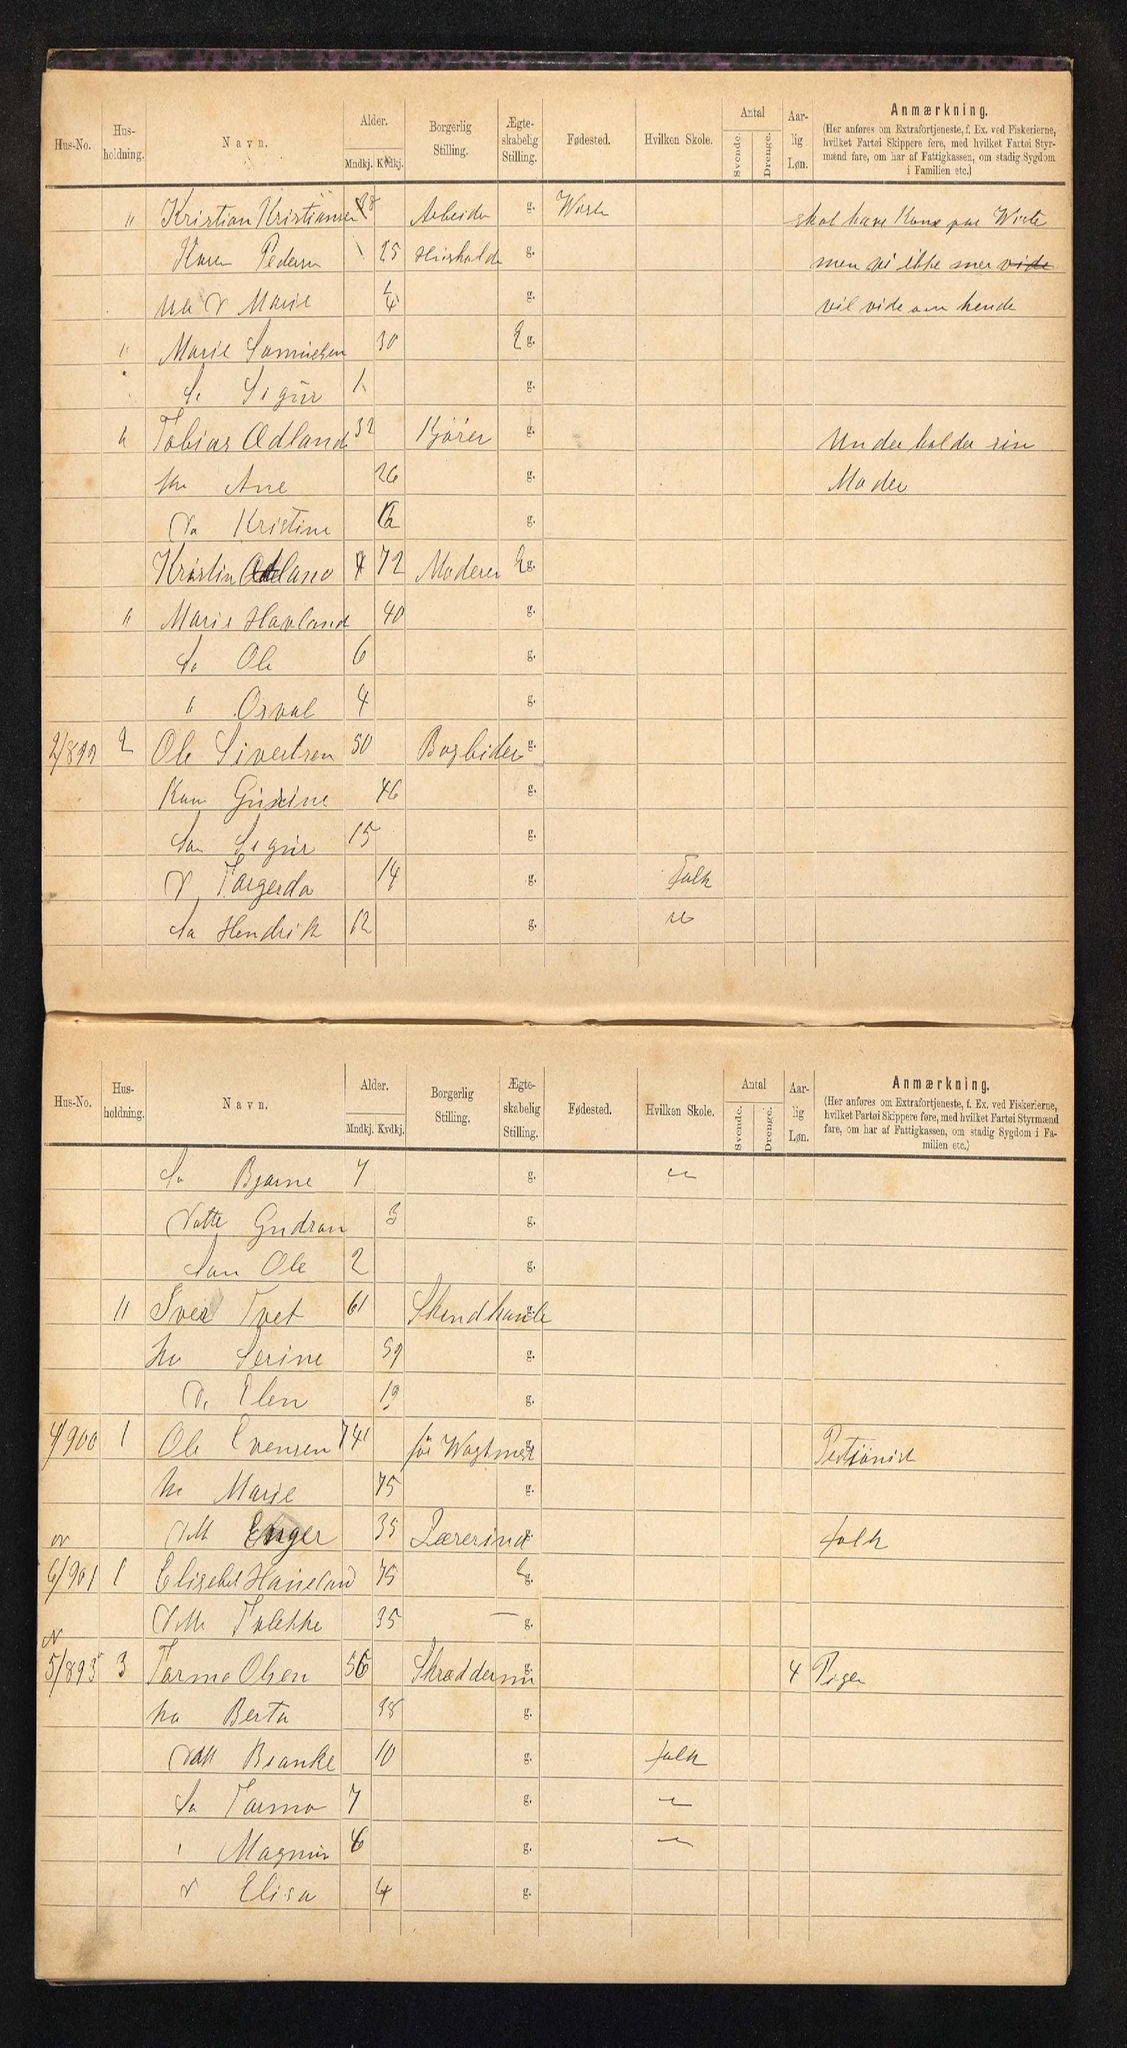 Hus-No. Hus-holdning. Navn. Alder. Mndkj. Kvdkj. Borgerlig Stilling. Ægte-skabelig Stilling. Fødested. Hvilken Skole. Antal Svende. Drenge. Aar-lig Løn. Anmærkning.
(Her anføres om Extrafortjeneste, f. Ex. ved Fiskerierne, hvilket Fartøi Skippere føre, med hvilket Fartøi Styr-mænd fare, om har af Fattigkassen, om stadig Sygdom i Familien etc.)
" Kristian Kristiansen 28 Arbeider g. skal have Kone paa
Karen Pedersen 25 Hushold g. men vi ikke mer vide
D Marie 1/4 g. vil vide om hende
" Marie Samuelsen 30 E g.
S Sigur 1 g.
" Tobias Ødland 32 Kjører g. Underholder sin
hu Ane 26 g. Moder
Da Kristine g.
Kristin Ødland 72 Moderen E g.
" Marie Havland 40 g.
So Ole 6 g.
" Osval 4 g.
2/899 2 Ole Sivertsen 50 Bogbider g.
Kone Gurine 46 g.
Søn Sigur 15 g.
D Torgerda 14 g. folk
Sø Hendrik 12 g. "
Hus-No. Hus-holdning. Navn. Alder. Mndkj. Kvdkj. Borgerlig Stilling. Ægte-skabelig Stilling. Fødested. Hvilken Skole. Antal Svende. Drenge. Aar-lig Løn. Anmærkning.
(Her anføres om Extrafortjeneste, f. Ex. ved Fiskerierne, hvilket Fartøi Skippere føre, med hvilket Fartøi Styrmænd fare, om har af Fattigkassen, om stadig Sygdom i Fa-milien etc.)
Sø Bjarne 7 g. "
Datte Gudran 3 g.
Søn Ole 2 g.
" Iver Tvet 61 g.
hu Serine 59 g.
D. Elen 19 g.
4/900 1 Ole Evensen 741 før g. Pensjonist
hu Marie 75 g.
Datt Enger 35 Lærerind g. folk
6/901 1 Elisebet Haneland 75 E g.
Datte Tolekke 35 — g.
5/893 3 Tarmo Olsen 56 Skræddermi g. 4 Piger
hu Berta 38 g.
Datt Beanke 10 g. folk
Sø Tarmo 7 g. "
" Magnus 6 g. "
D Elisa 4 g.